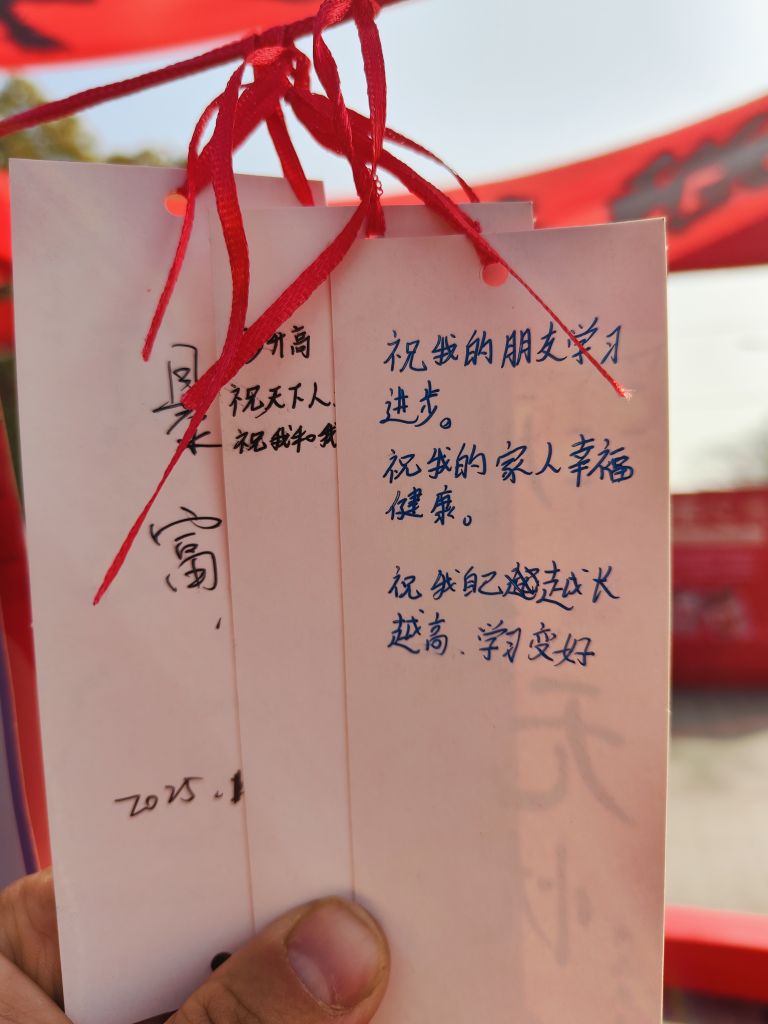 暴
富
2025.
升高
祝天下人
祝我和我
祝我的朋友学习
进步。
祝我的家人幸福
健康。
祝我自己越长
越高、学习变好
无